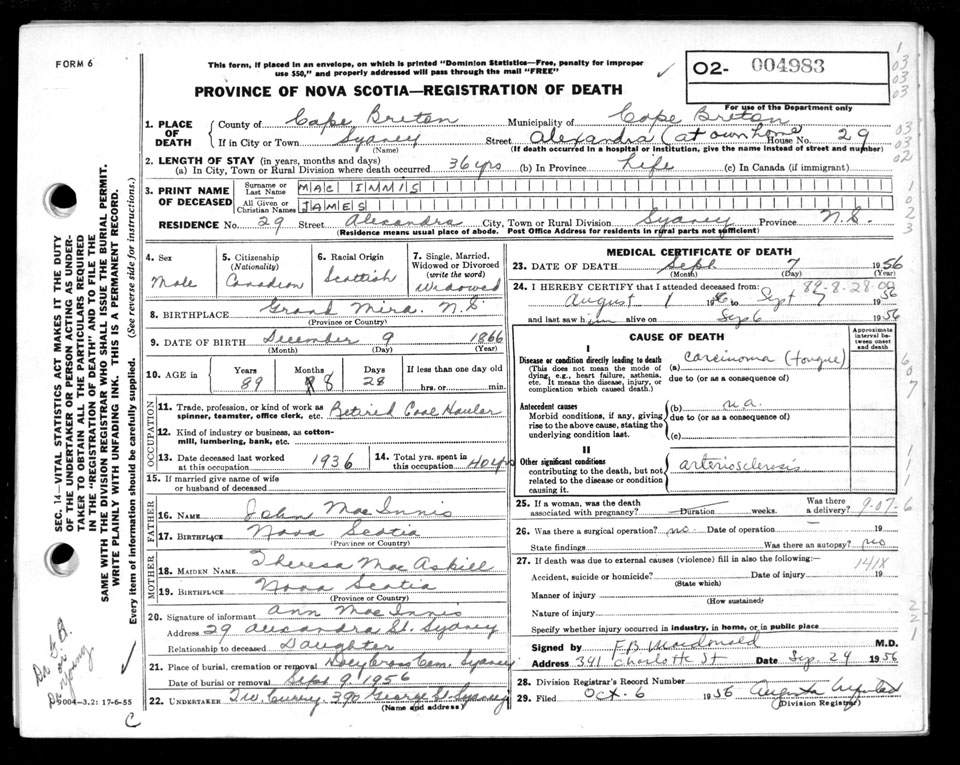 FORM 6
This form, if placed in an envelope, on which is printed "Dominion Statistics—Free, penalty for improper
use $50," and properly addressed will pass through the mail "FREE"
02- 004983
For use of the Department only
PROVINCE OF NOVA SCOTIA—REGISTRATION OF DEATH
1. PLACE OF DEATH
County of Cape Breton Municipality of Cape Breton
If in City or Town Sydney Street Alexandra (at own home House No. 29
(Name) (If death occurred in a hospital or institution, give the name instead of street and number)
2. LENGTH OF STAY (in years, months and days)
(a) In City, Town or Rural Division where death occurred 36 yrs (b) In Province Life (c) In Canada (if immigrant)
3. PRINT NAME OF DECEASED
Surname or Last Name MAC INNIS
All Given or Christian Names JAMES
RESIDENCE No. 29 Street Alexandra City, Town or Rural Division Sydney Province N.S.
(Residence means usual place of abode. Post Office Address for residents in rural parts not sufficient)
4. Sex Male
5. Citizenship (Nationality) Canadian
6. Racial Origin Scottish
7. Single, Married, Widowed or Divorced (write the word) Widowed
8. BIRTHPLACE Grand Mira. N.S.
(Province or Country)
9. DATE OF BIRTH December 9 1866
(Month) (Day) (Year)
10. AGE in Years 89 Months 8 Days 28 If less than one day old hrs. or min.
OCCUPATION
11. Trade, profession, or kind of work as spinner, teamster, office clerk, etc. Retired Coal Hauler
12. Kind of industry or business, as cotton-mill, lumbering, bank, etc.
13. Date deceased last worked at this occupation 1936
14. Total yrs. spent in this occupation 40 yrs
15. If married give name of wife or husband of deceased
FATHER
16. NAME John MacInnis
17. BIRTHPLACE Nova Scotia
(Province or Country)
MOTHER
18. MAIDEN NAME Theresa MacAskill
19. BIRTHPLACE Nova Scotia
(Province or Country)
20. Signature of informant Ann MacInnis
Address 29 Alexandra St. Sydney
Relationship to deceased Daughter
21. Place of burial, cremation or removal Holy Cross Cem. Sydney
Date of burial or removal Sept 9 1956
22. UNDERTAKER T.W. Curry. 390 George St. Sydney
(Name and address)
MEDICAL CERTIFICATE OF DEATH
23. DATE OF DEATH Sept 7 1956
(Month) (Day) (Year)
89-8-28-00
24. I HEREBY CERTIFY that I attended deceased from:
August 1 1956 to Sept 7 1956
and last saw him alive on Sep 6 1956
CAUSE OF DEATH
Approximate interval between onset and death
I
Disease or condition directly leading to death
(This does not mean the mode of dying, e.g., heart failure, asthenia, etc. It means the disease, injury, or complication which caused death.)
(a) Carcinoma (tongue)
due to (or as a consequence of)
Antecedent causes
Morbid conditions, if any, giving rise to the above cause, stating the underlying condition last.
(b) n.a.
due to (or as a consequence of)
(c)
II
Other significant conditions
contributing to the death, but not related to the disease or condition causing it.
arteriosclerosis
25. If a woman, was the death associated with pregnancy? Duration weeks. Was there a delivery?
9-07-6
26. Was there a surgical operation? no Date of operation 19
State findings Was there an autopsy? no
27. If death was due to external causes (violence) fill in also the following:—
141X
Accident, suicide or homicide? Date of injury 19
(State which)
Manner of injury
(How sustained)
Nature of injury
Specify whether injury occurred in industry, in home, or in public place
Signed by F.B. MacDonald M.D.
Address 341 Charlotte St Date Sep. 24 1956
28. Division Registrar's Record Number
29. Filed Oct-6 1956 Augusta
(Division Registrar)
SEC. 14—VITAL STATISTICS ACT MAKES IT THE DUTY
OF THE UNDERTAKER OR PERSON ACTING AS UNDER-
TAKER TO OBTAIN ALL THE PARTICULARS REQUIRED
IN THE "REGISTRATION OF DEATH" AND TO FILE THE
SAME WITH THE DIVISION REGISTRAR WHO SHALL ISSUE THE BURIAL PERMIT.
WRITE PLAINLY WITH UNFADING INK. THIS IS A PERMANENT RECORD.
Every item of information should be carefully supplied. (See reverse side for instructions.)
9004-3.2: 17-6-55
C